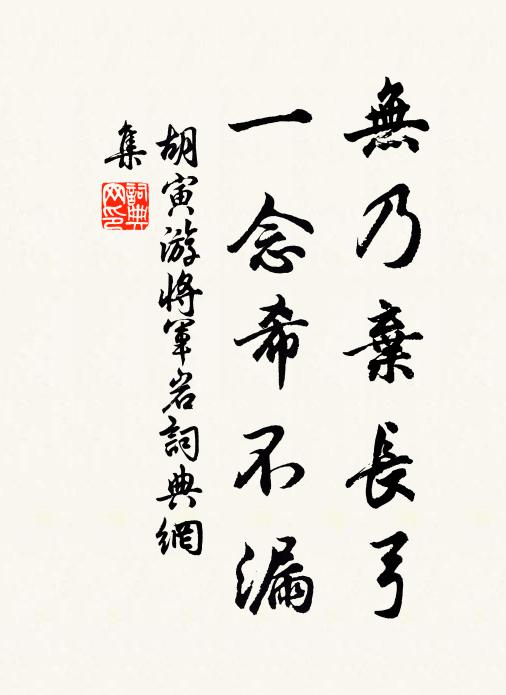 無乃棄長弓
一念希不漏
胡寅游將軍岩詞典網
集
詞典
网印